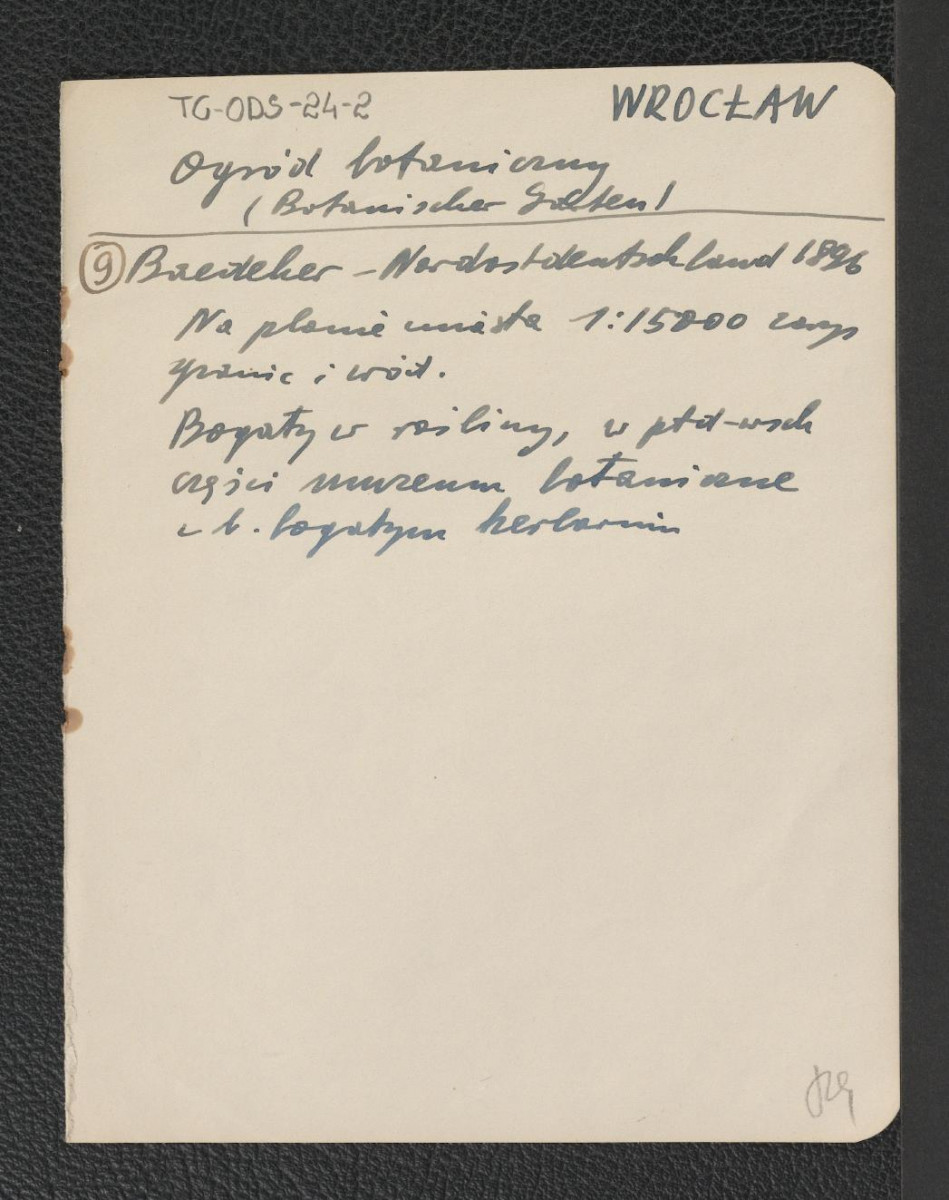 TG-ODS-24-2 WROCŁAW
Ogród botaniczny
(Botanischer Garten)
9 Baedeker - Nordostdeutschland 1896
Na planie miasta 1:15000 zarys
granic i wód.
Bogaty w rośliny, w płd-wsch
części muzeum botaniczne
z b. bogatym herbarium